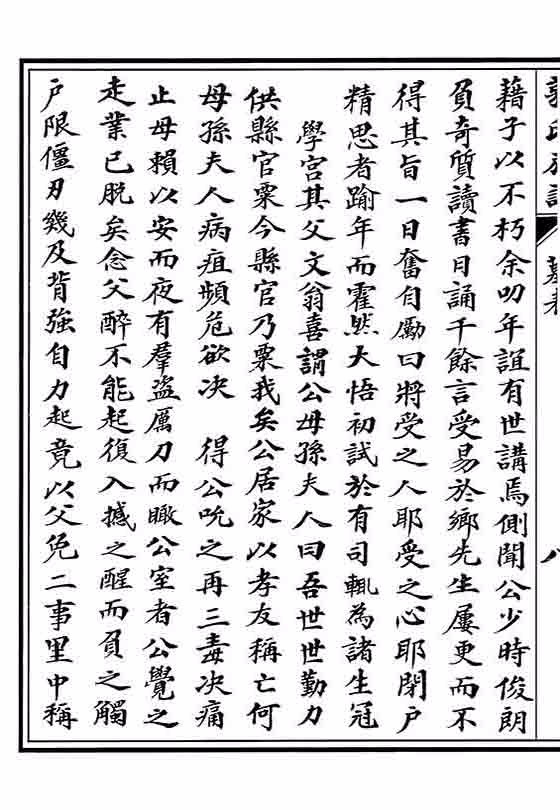 藉子以不朽余叨年誼有世講焉側聞公少時俊朗
負奇質讀書日誦千餘言受易於鄉先生屢更而不
得其旨一日奮自勵曰將受之人耶受之心耶閉户
精思者踰年而霍然大悟初試於有司輒為諸生冠
學宮其父文翁喜謂公母孫夫人曰吾世世勤力
供縣官粟今縣官乃粟我矣公居家以孝友稱亡何
母孫夫人病疽頻危欲决 得公吮之再三毒决痛
止母賴以安而夜有羣盗厲刀而瞰公室者公覺之
走業已脱矣念父醉不能起復入撼之醒而負之觸
户限僵刃幾及背強自力起竟以父免二事里中稱